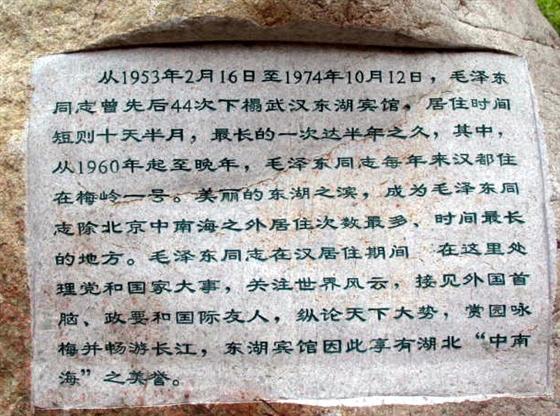 从1953年2月16日至1974年10月12日，毛泽东
同志曾先后44次下榻武汉东湖宾馆，居住时间
短则十天半月，最长的一次达半年之久，其中，
从1960年起至晚年，毛泽东同志每年来汉都住
在梅岭一号。美丽的东湖之滨，成为毛泽东同
志除北京中南海之外居住次数最多、时间最长
的地方。毛泽东同志在汉居住期间 在这里处
理党和国家大事，关注世界风云，接见外国首
脑、政要和国际友人，纵论天下大势，赏园咏
梅并畅游长江，东湖宾馆因此享有湖北“中南
海”之美誉。